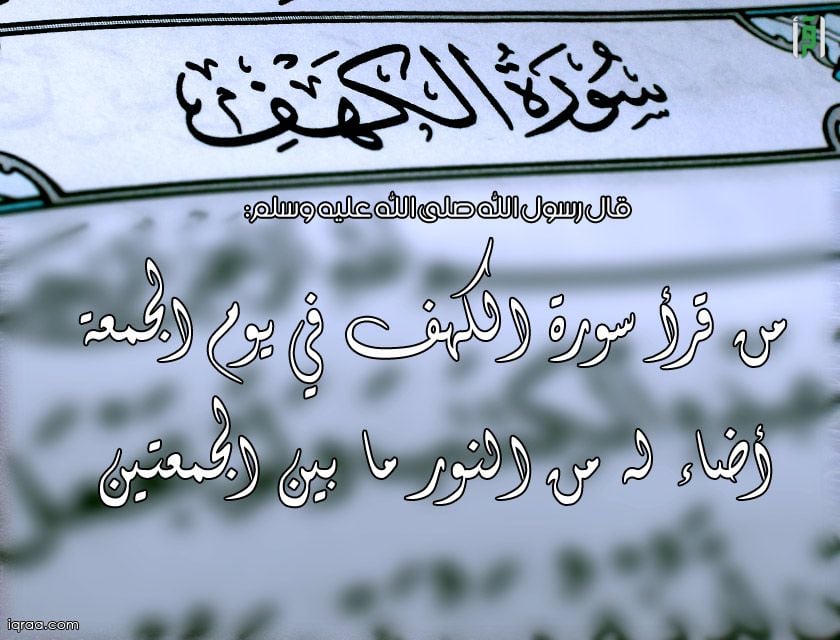 سُورَةُ الكَهَفِ
قال رسول الله صلى الله عليه وسلم:
من قرأ سورة الكهف في يوم الجمعة
أضاء له من النور ما بين الجمعتين
iqraa.com